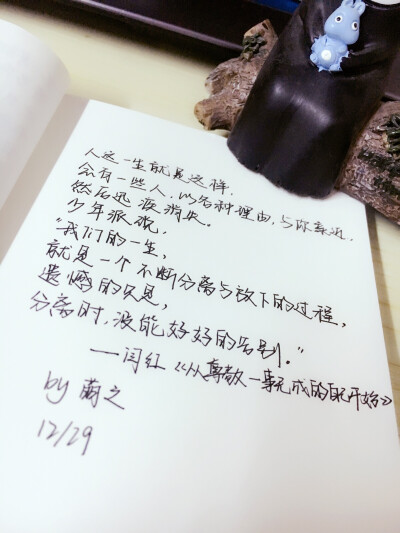 人这一生就是这样，
会有一些人，以各种理由，与你亲近，
然后迅速消失。
少年派说，
“我们的一生，
就是一个不断分离与放下的过程，
遗憾的只是，
分离时，没能好好的告别。”
——闫红《从尊敬一事无成的自己开始》
by 萌之
12/29